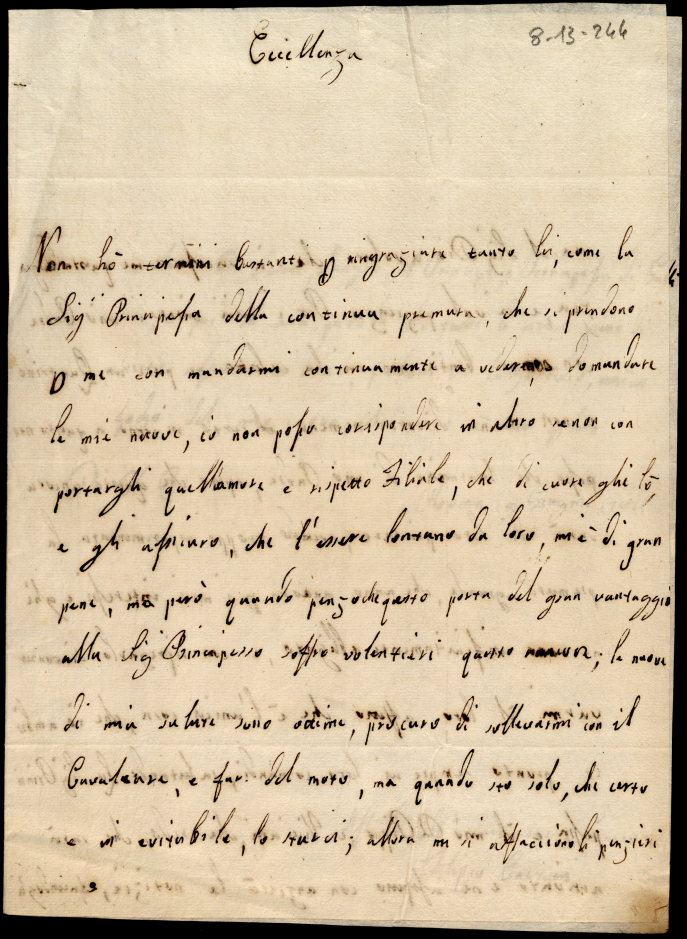 8-13-244
Eccellenza
Non hò intermini bastanti p ringraziare tanto lei, come la
Sig.ra Principessa della continua premura, che si prendono
p me con mandarmi continuamente a vedere, domandare
le mie nuove, io non posso corispondere in altro senon con
portargli quell'amore e rispetto Filiale, che di cuore ghe lò,
e gli assicuro, che l'essere lontano da loro, mi è di gran
pene, ma però quando penzo che questo porta del gran vantaggio
alla Sig Principessa soffro volentieri questo; le nuove
di mia salute sono ottime, procuro di sollevarmi con il
Cavalcare, e far del moto, ma quando sto solo, che certo
e in evitabile, lo starci; allora mi si affacciono li penzieri